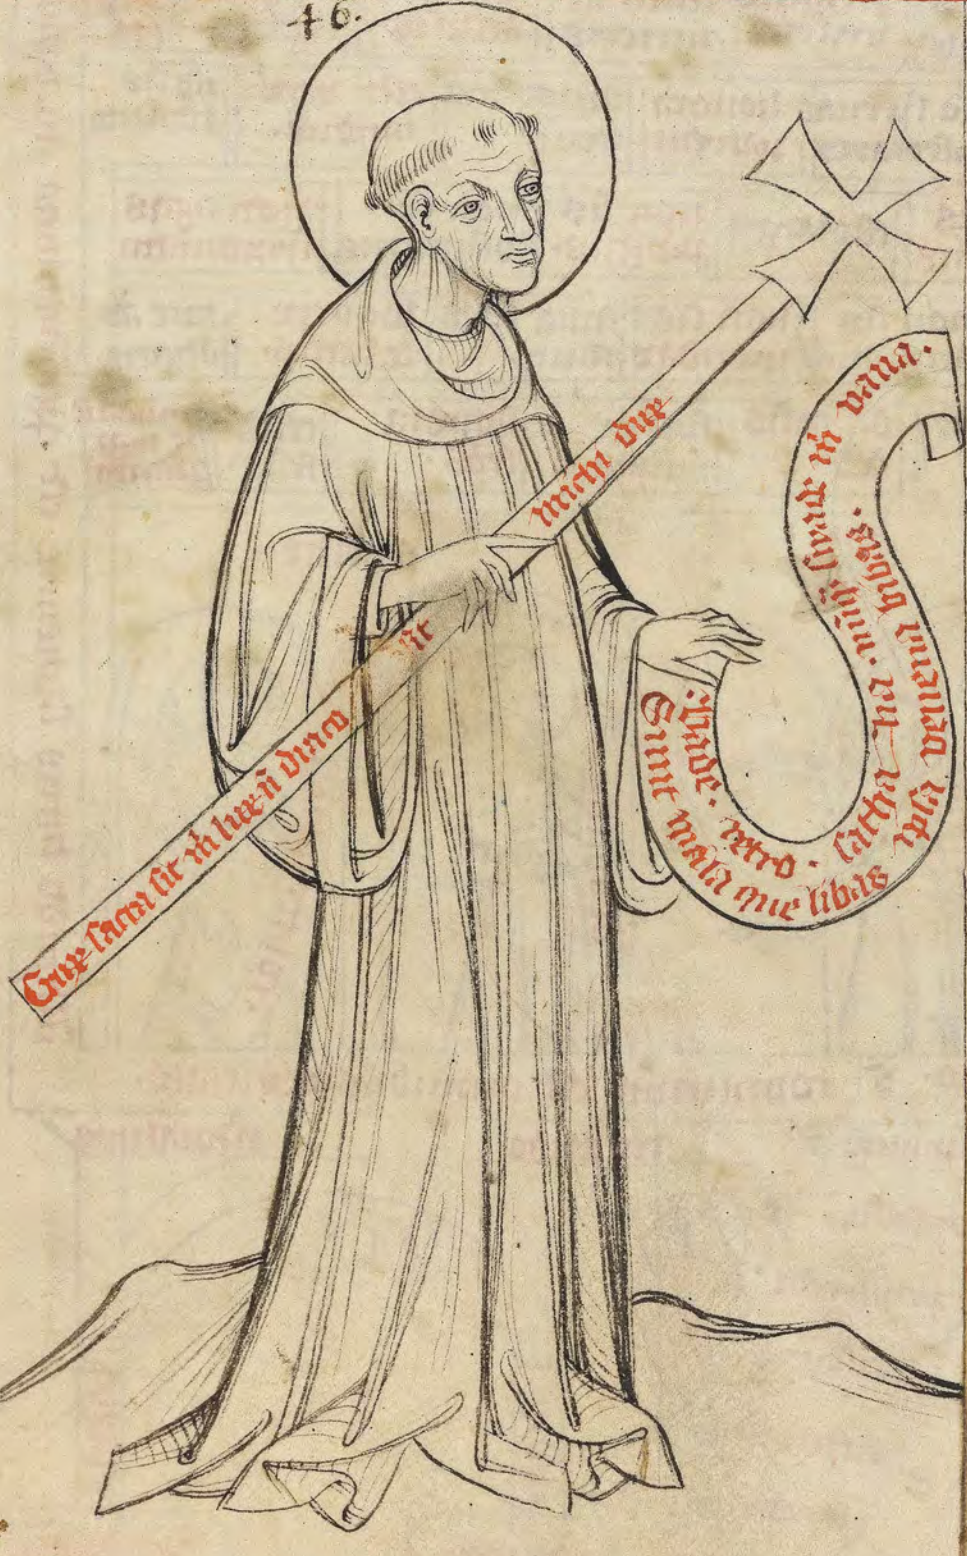 46.
Crux sacra sit m̄ lux n̄ draco sit michi dux
Vade. retro. satha na. nūq̄ȝ suade m̄ vana.
Sunt mala que libas ipse venena bibas.